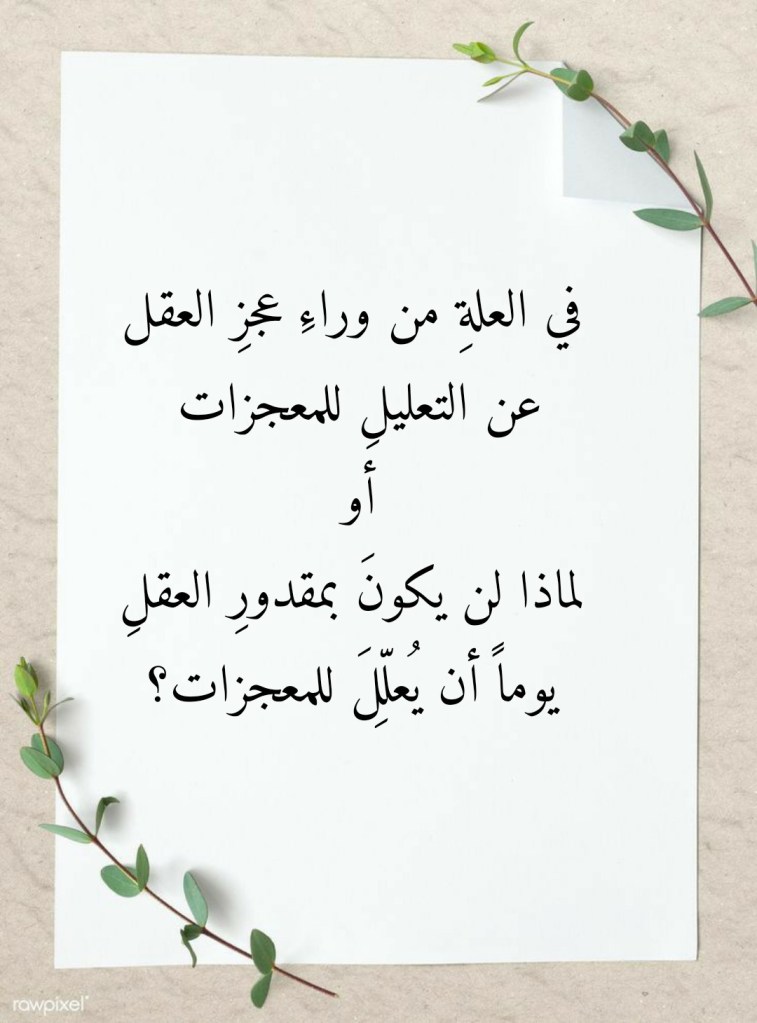 في العلةِ من وراءِ عجزِ العقل
عن التعليلِ للمعجزات
أو
لماذا لن يكونَ بمقدورِ العقلِ
يوماً أن يُعلّلَ للمعجزات؟
rawpixel